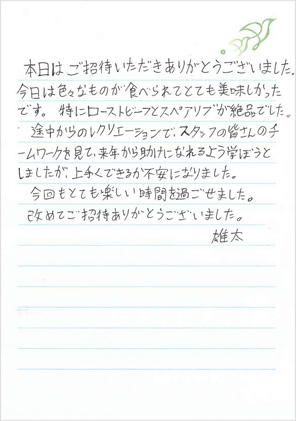 本日はご招待いただきありがとうございました。
今日は色々なものが食べられてとても美味しかった
です。特にローストビーフとスペアリブが絶品でした。
途中からのレクリエーションで、スタッフの皆さんのチ
ームワークを見て、来年から助けになれるよう学ぼうと
しましたが、上手くできるか不安になりました。
今回もとても楽しい時間を過ごせました。
改めてご招待ありがとうございました。
雄太